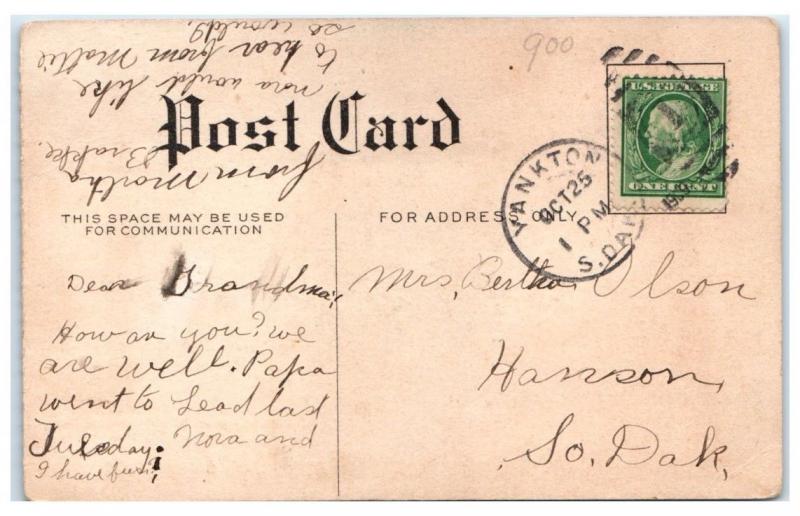 900
Post Card
THIS SPACE MAY BE USED
FOR COMMUNICATION
FOR ADDRESS ONLY
U.S. POSTAGE
ONE CENT
YANKTON
OCT 25
1 PM
S. DAK.
1909
Dear Grandma;
How are you? we
are well. Papa
went to Lead last
Tuesday. Nora and
I have fun.
from Martha
Brakke.
nora would like
to hear from Mollie
so would I.
Mrs, Bertha Olson
Hanson,
So. Dak,